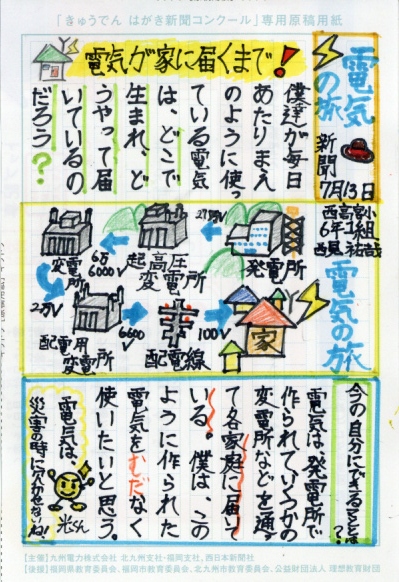 「きゅうでん はがき新聞コンクール」専用原稿用紙
電気の旅
新聞
7月13日
西高宮小
6年1組
電気が家に届くまで!
僕達が毎日
あたりまえ
のように使っ
ている電気
は、どこで
生まれ、ど
うやって届
いているの
だろう?
電気の旅
発電所
27万5V
起高圧
変電所
6万
6000V
変電所
2万V
配電用
変電所
6600
V
配電線
100V
家
今の自分にできることは?
電気は、発電所で
作られていくつかの
変電所などを通っ
て各家庭に届いて
いる。僕は、この
ように作られた
電気をむだなく
使いたいと思う。
電気は、
災害の時に欠かせないね!
光くん
【主催】九州電力株式会社 北九州支社・福岡支社、西日本新聞社
【後援】福岡県教育委員会、福岡市教育委員会、北九州市教育委員会、公益財団法人 理想教育財団